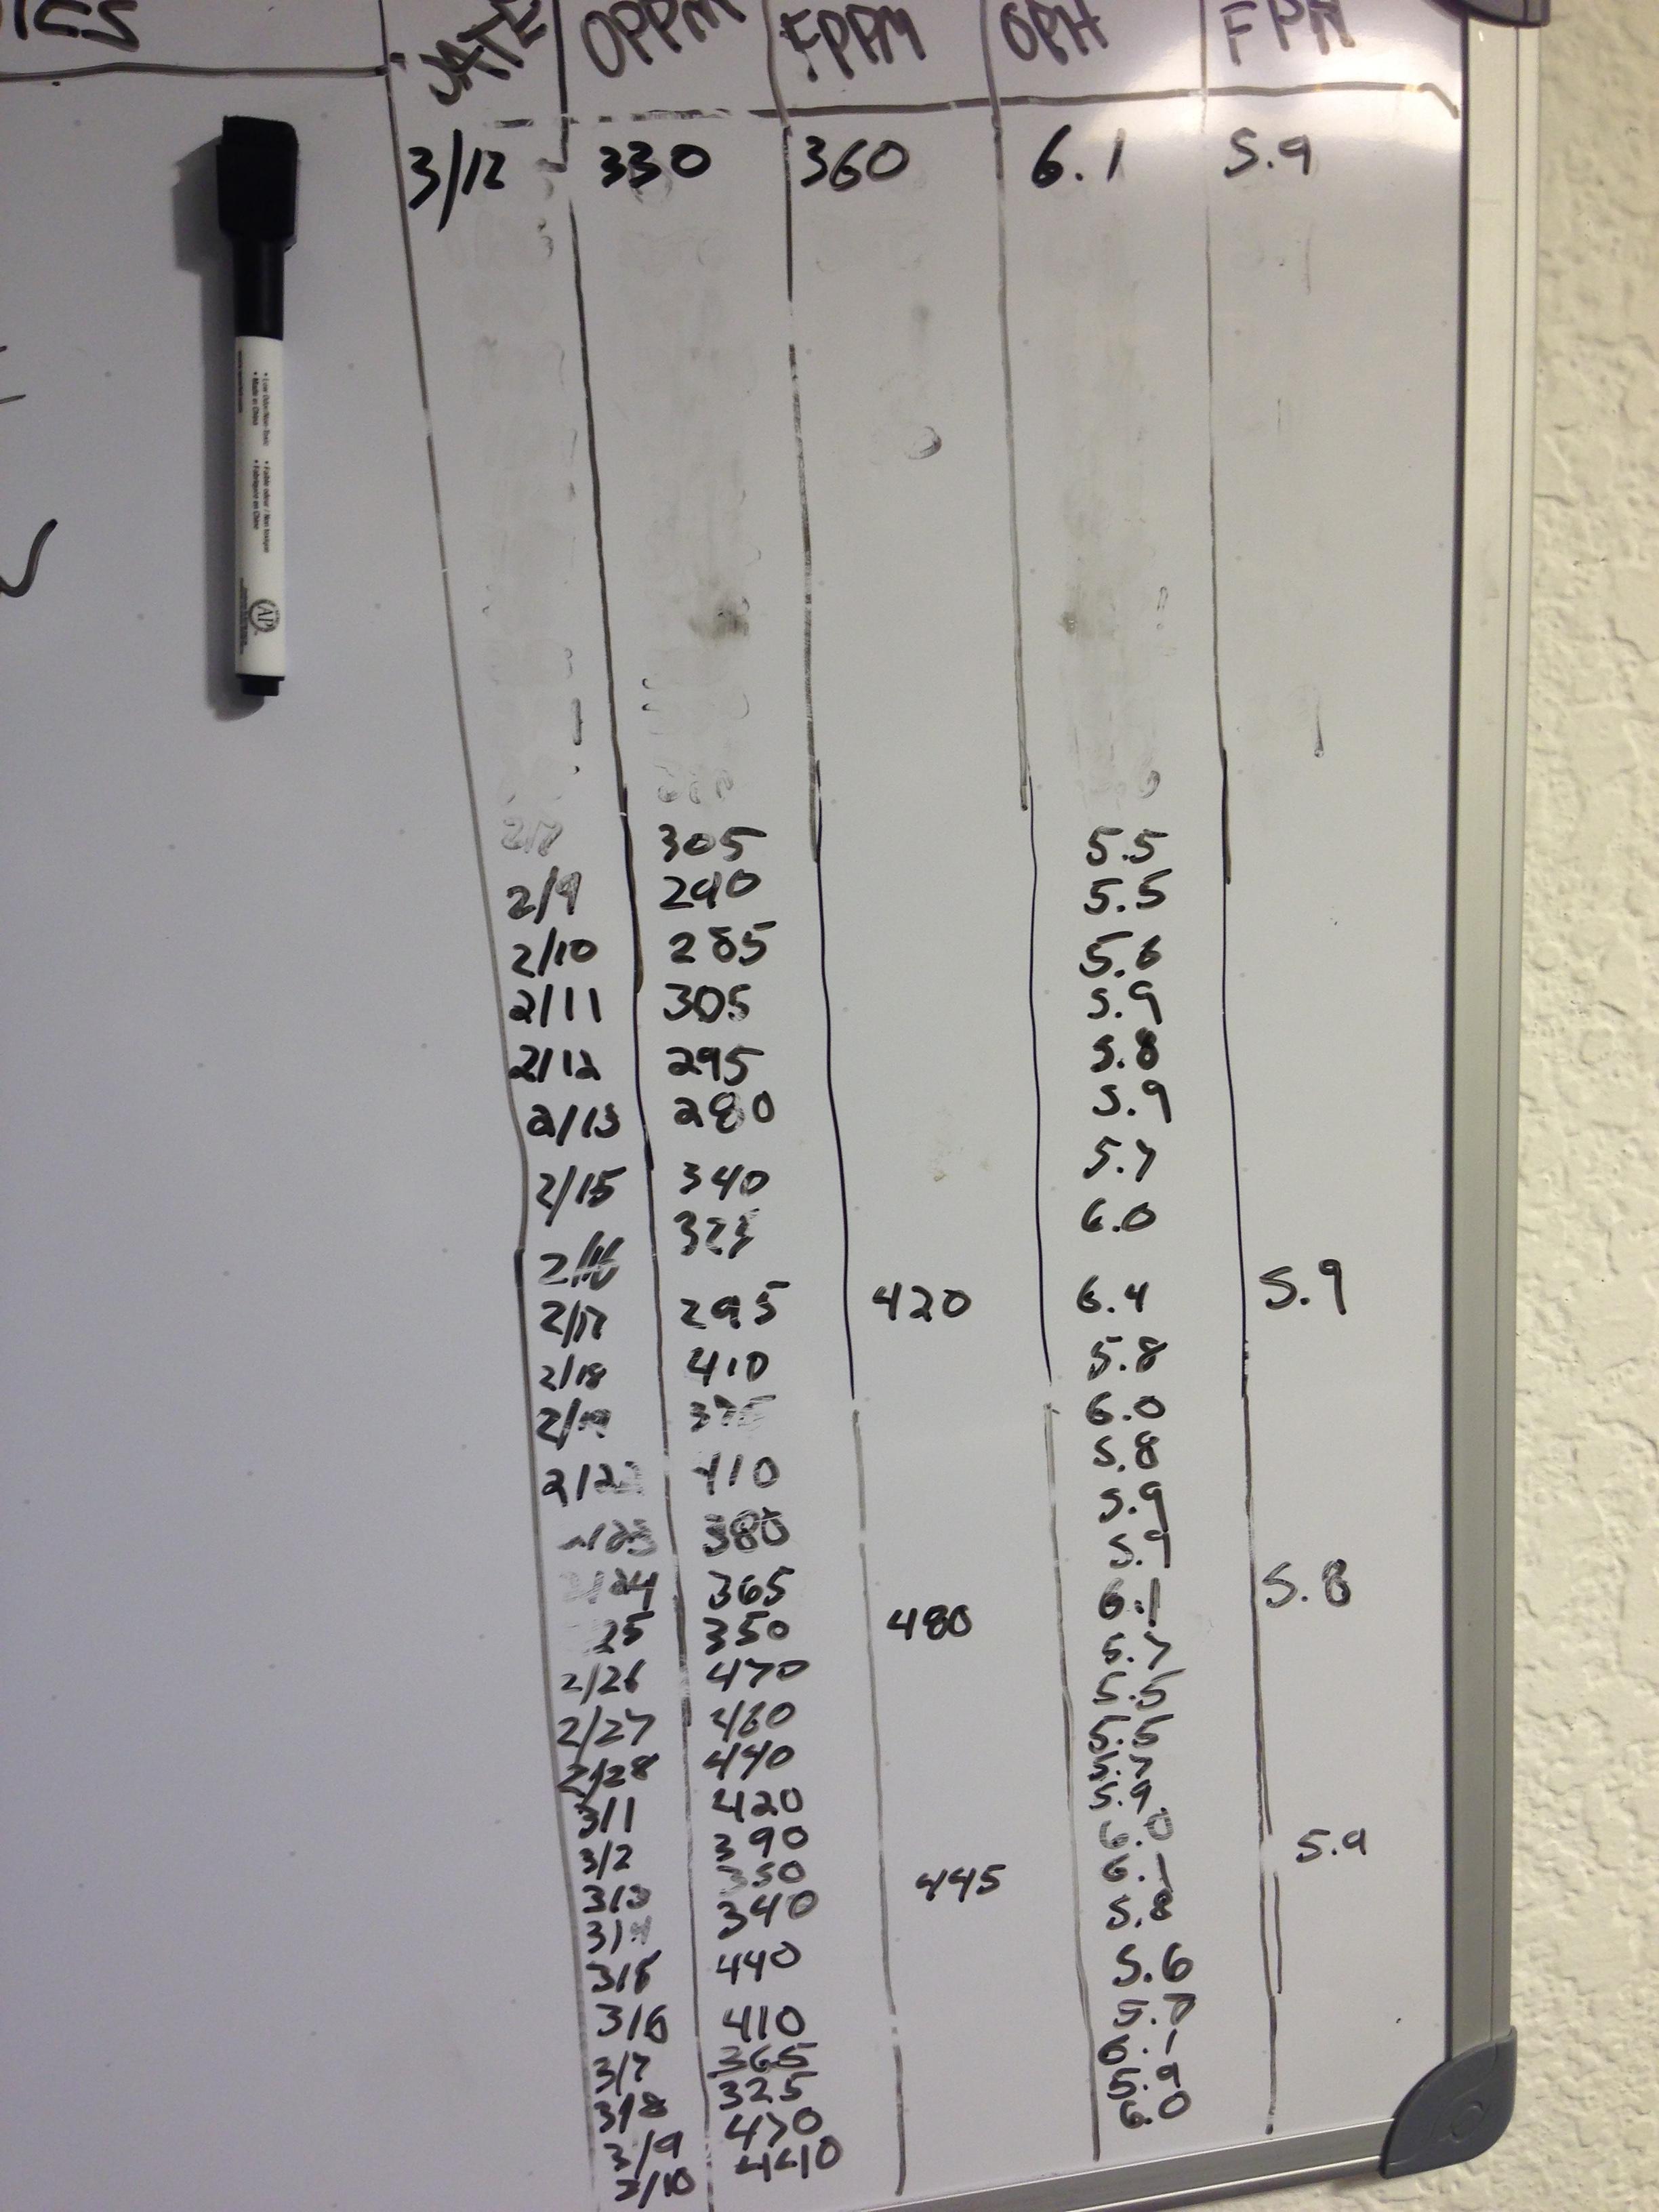 DATE OPPM FPPM OPH FPH
3/12 330 360 6.1 5.9
305 5.5
2/9 290 5.5
2/10 285 5.6
2/11 305 5.9
2/12 295 5.8
2/13 280 5.9
2/15 340 5.7
2/16 325 6.0
2/17 295 420 6.4 5.9
2/18 410 5.8
2/19 375 6.0
2/22 410 5.8
/23 380 5.9
/24 365 5.9
25 350 480 6.1 5.8
2/26 470 5.7
2/27 460 5.5
2/28 440 5.5
3/1 420 5.7
3/2 390 5.9
3/3 350 6.0
3/4 340 445 6.1 5.9
3/5 440 5.8
3/6 410 5.6
3/7 365 5.7
3/8 325 6.1
3/9 470 5.9
3/10 440 6.0